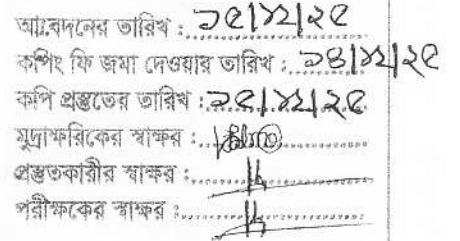 আবেদনের তারিখ : ১৫/১২/২৫
কপিং ফি জমা দেওয়ার তারিখ : ১৪/১২/২৫
কপি প্রস্তুতের তারিখ : ১৫/১২/২৫
মুদ্রাক্ষরিকের স্বাক্ষর :
প্রস্তুতকারীর স্বাক্ষর :
পরীক্ষকের স্বাক্ষর :